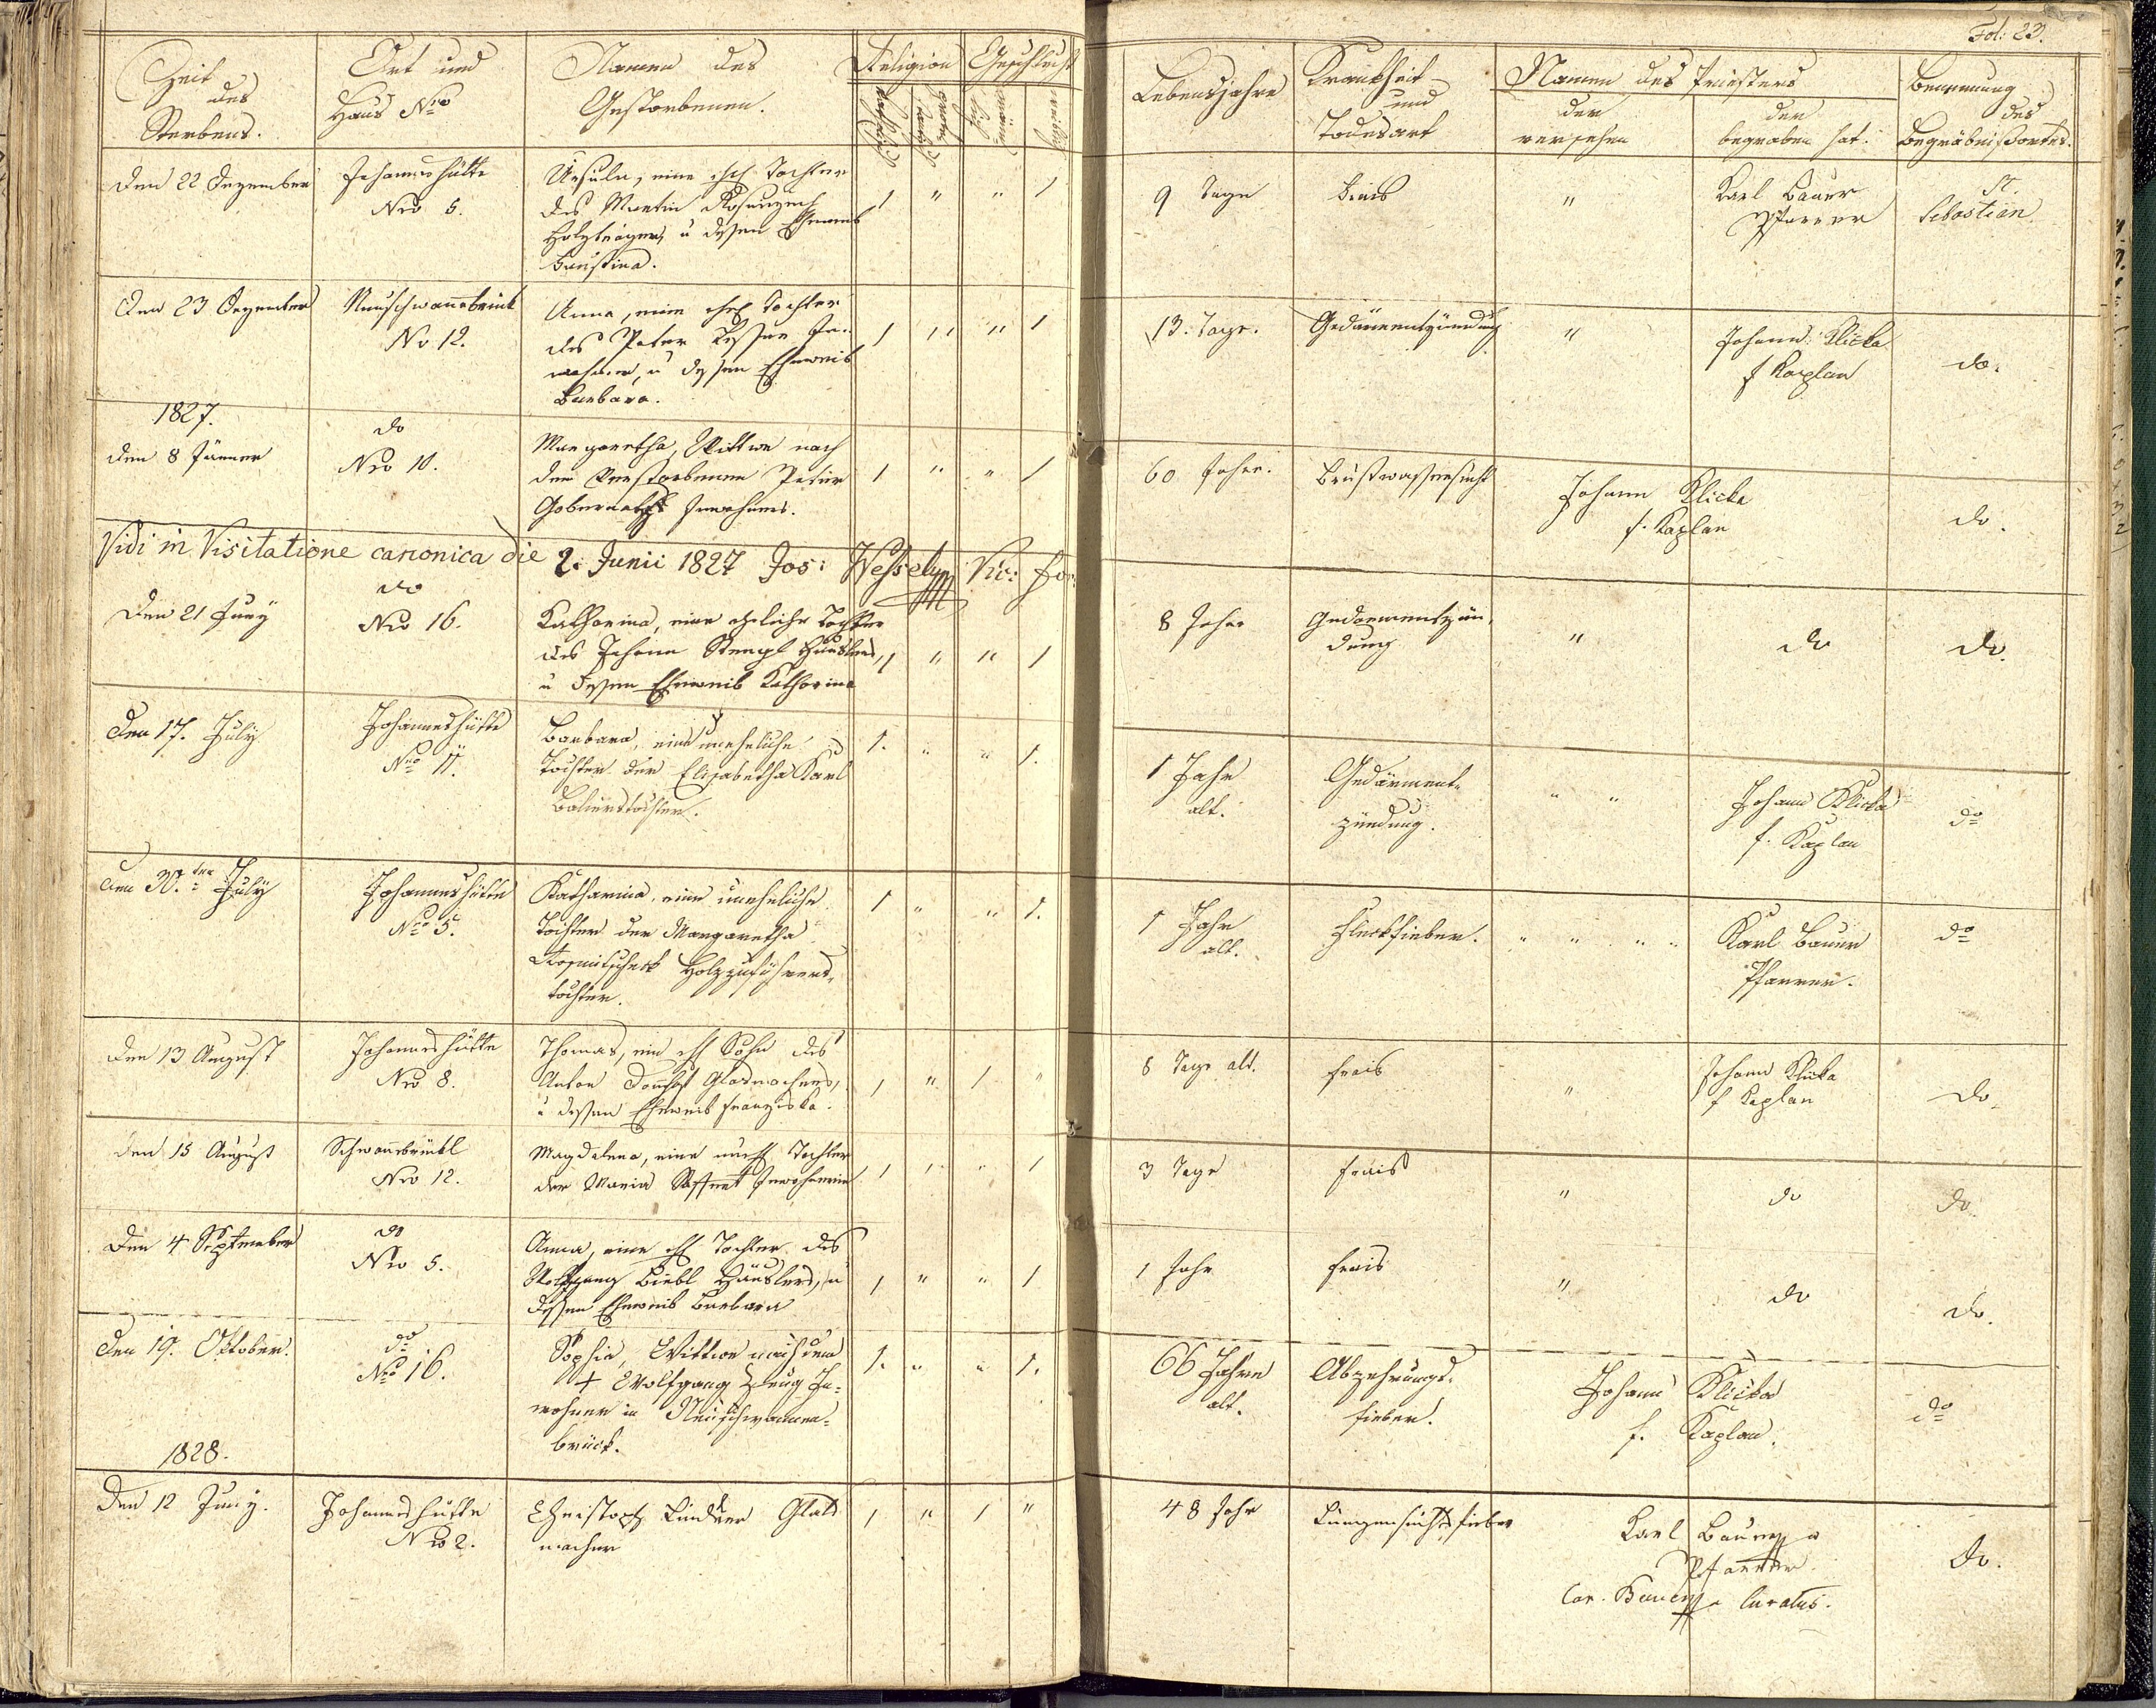 Fol: 23.
Zeit des Sterbens.
Ort und Haus Nro
Namen des Gestorbenen.
Religion
Geschlecht
Lebensjahre
Krankheit und Todesart
Namen des Priesters
der versehen
der begraben hat.
Benennung des Begräbnißortes.
den 22 Dezember
Johanneshütte
Nro 5.
Ursula, eine ehl Tochter
des Martin
Holzträgers, u dessen Eheweib
Faustina.
1 " " 1
9 Tage
Frais
"
Karl Bauer
Pfarrer
St.
Sebastian
den 23 Dezember
Neuschwannbrück
No 12.
Anna, eine ehl Tochter
des Peter In-
wohner, u dessen Eheweib
Barbara.
1 " " 1
13. Tage.
Gedärmentzündung
"
Johann Klicka
f Kaplan
do.
1827.
den 8 Jänner
do
Nro 10.
Margaretha, Wittwe nach
dem Verstorbenen Peter
Inwohners.
1 " " 1
60 Jahr.
Brustwassersucht
Johann Klicka
f. Kaplan
do.
Vidi in Visitatione canonica die 2. Junii 1827 Jos: Wessely Vic: for:
den 21 Juny
do
Nro 16.
Katharina, eine eheliche Tochter
des Johann Stengl Häuslers,
u dessen Eheweib Katharina
1 " " 1
8 Jahr
Gedärmentzün-
dung
"
do
do.
den 17. July
Johanneshütte
Nro 11.
Barbara, eine uneheliche
Tochter der Elisabetha Karl
1. " " 1.
1 Jahr
alt.
Gedärment-
zündung.
" "
Johann Klicka
f. Kaplan
do
den 30.ten July
Johanneshütte
Nro 5.
Katharina, eine uneheliche
Tochter der Margaretha
Holzzuführers-
tochter.
1 " " 1.
1 Jahr
alt.
Fleckfieber.
" " " "
Karl Bauer
Pfarrer.
do
den 13 August
Johanneshütte
Nro 8.
Thomas, ein ehl Sohn des
Anton Glasmachers,
u dessen Eheweib Franziska.
1 " 1 "
8 Tage alt.
Frais
"
Johann Klicka
f Kaplan
do.
den 15 August
Schwannbrückl
Nro 12.
Magdalena, eine unehl Tochter
der Maria Inwohnerin
1 " " 1
3 Tage
Frais
"
do
do.
den 4 September
do
Nro 5.
Anna, eine ehl Tochter des
Wolfgang Liebl Häuslers, u
dessen Eheweib Barbara
1 " " 1
1 Jahr
Frais
"
do
do.
den 19. Oktober.
do
Nro 16.
Sophia, Wittwe nach dem
+ Wolfgang In-
wohner in Neuschwannen-
brück.
1. " " 1.
66 Jahre
alt.
Abzehrungs-
fieber.
Johann Klicka
f. Kaplan.
do
1828.
den 12 Juny.
Johanneshütte
Nro 2.
Christoph Lindner Glas
macher
1 " 1 "
48 Jahr
Lungensuchtsfieber
Karl Bauer
Pfarrer.
Car. Bauer Curatus.
do.